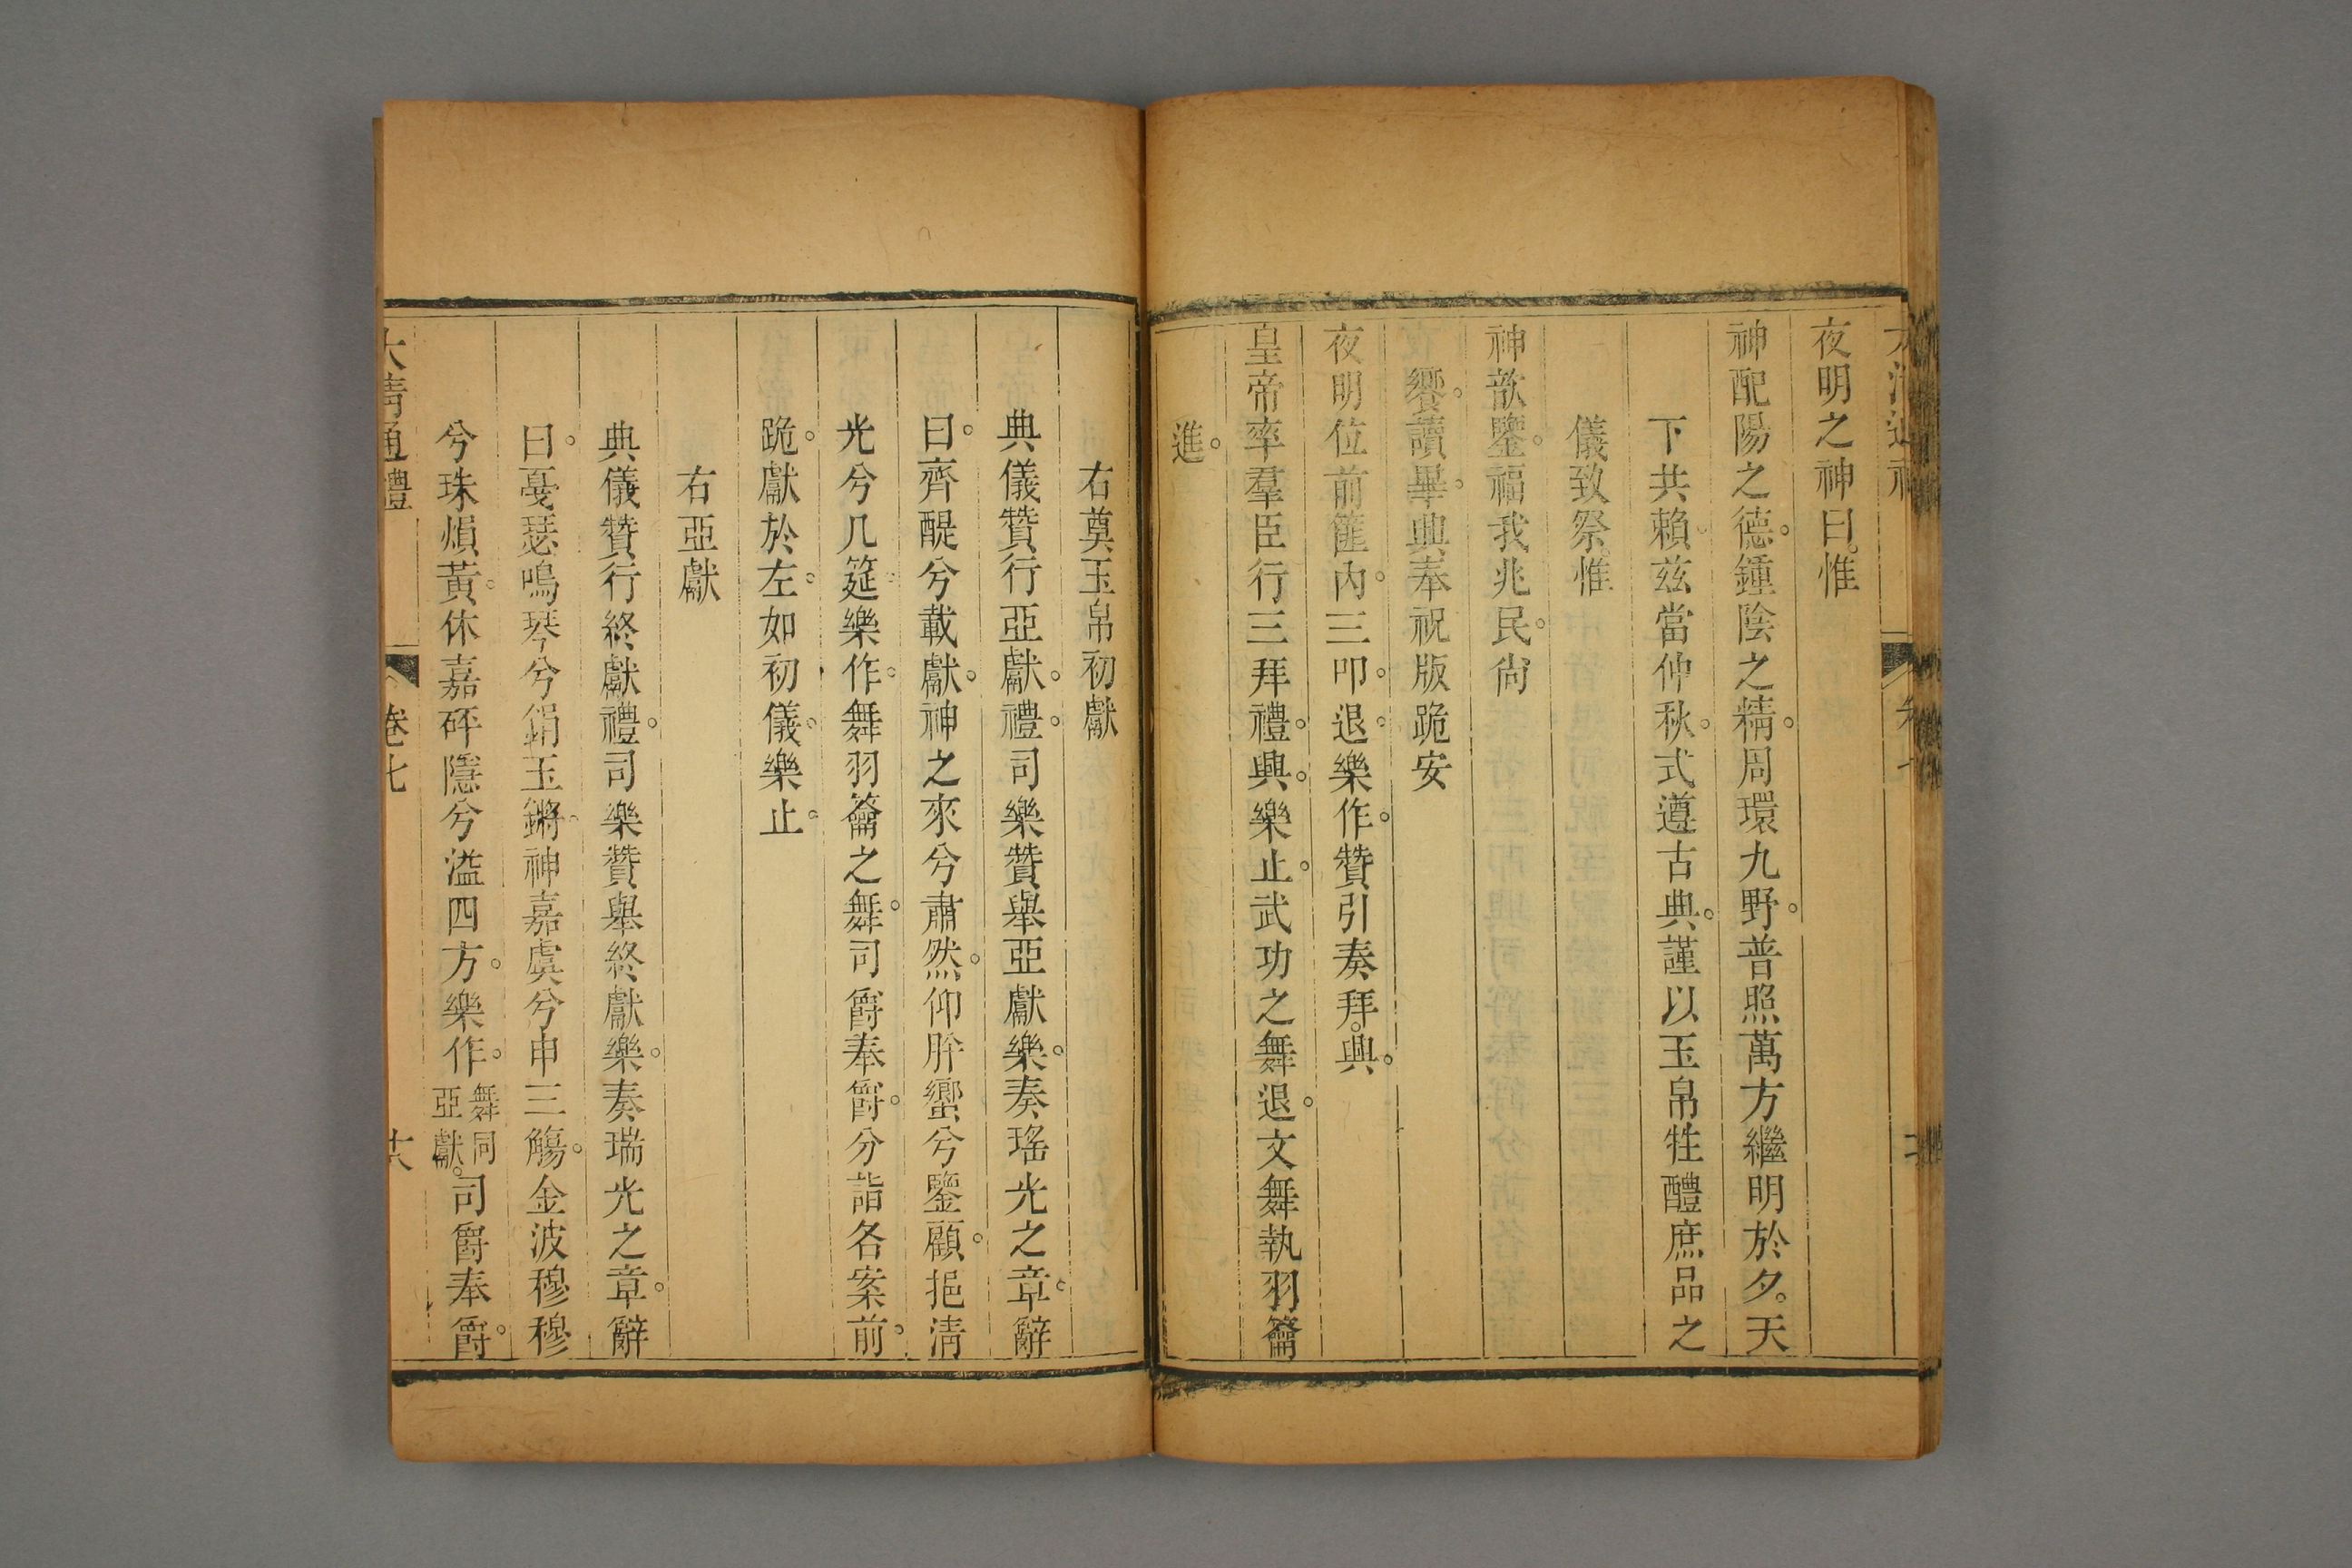 夜明之神曰。惟
神配陽之德。鍾陰之精。周環九野。普照萬方繼明於夕。天
下共賴兹當仲秋。式遵古典。謹以玉帛牲醴庶品之
儀致祭。惟
神歆鑒。福我兆民。尙
饗。讀畢。興奉祝版跪安
夜明位前篚內。三叩。退。樂作。贊引奏拜。興。
皇帝率羣臣行三拜禮。興。樂止。武功之舞退。文舞執羽籥
進。
右奠玉帛初獻
典儀贊行亞獻。禮。司樂贊舉亞獻樂。奏瑤光之章。辭
曰。齊醍兮載獻。神之來兮肅然。仰肸蠁兮鑒顧。挹淸
光兮几筵。樂作。舞羽籥之舞。司爵奉爵。分詣各案前。
跪。獻於左。如初儀。樂止。
右亞獻
典儀贊行終獻禮。司樂贊舉終獻樂。奏瑞光之章。辭
曰。戞瑟鳴琴兮鋗玉鏘。神嘉虞兮申三觴。金波穆穆
兮珠熉黃。休嘉砰隱兮溢四方。樂作。舞同亞獻。司爵奉爵。
大淸通禮 卷七